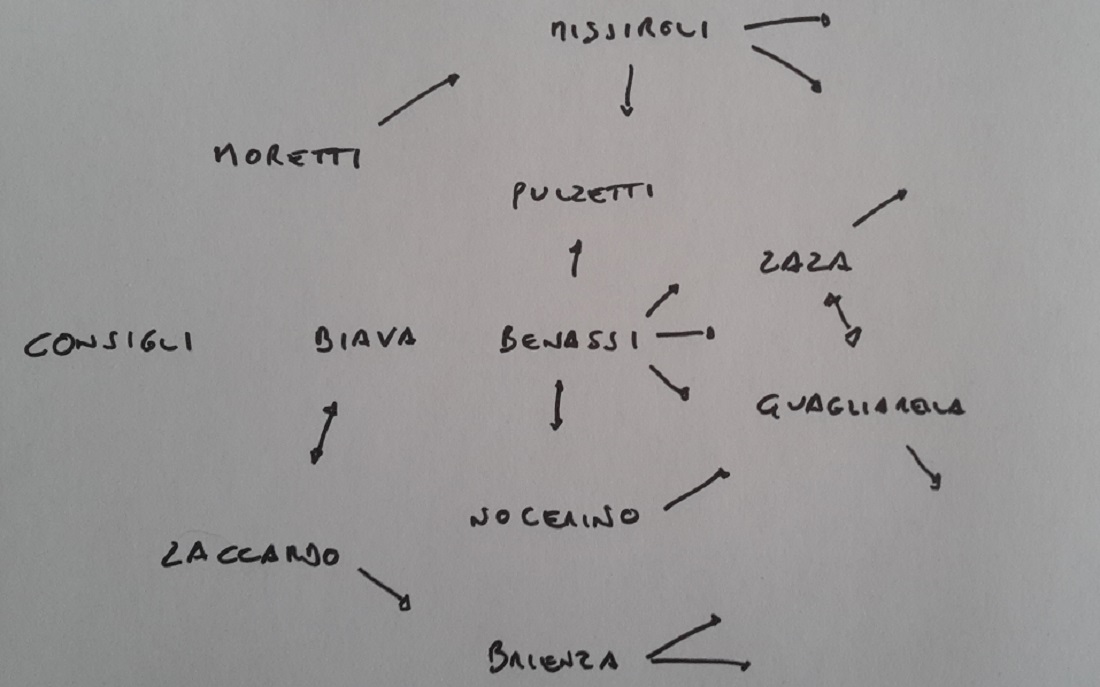 MISSIROLI
MORETTI
PULZETTI
ZAZA
CONSIGLI
BIAVA
BENASSI
QUAGLIARELLA
NOCERINO
ZACCARDO
BRIENZA